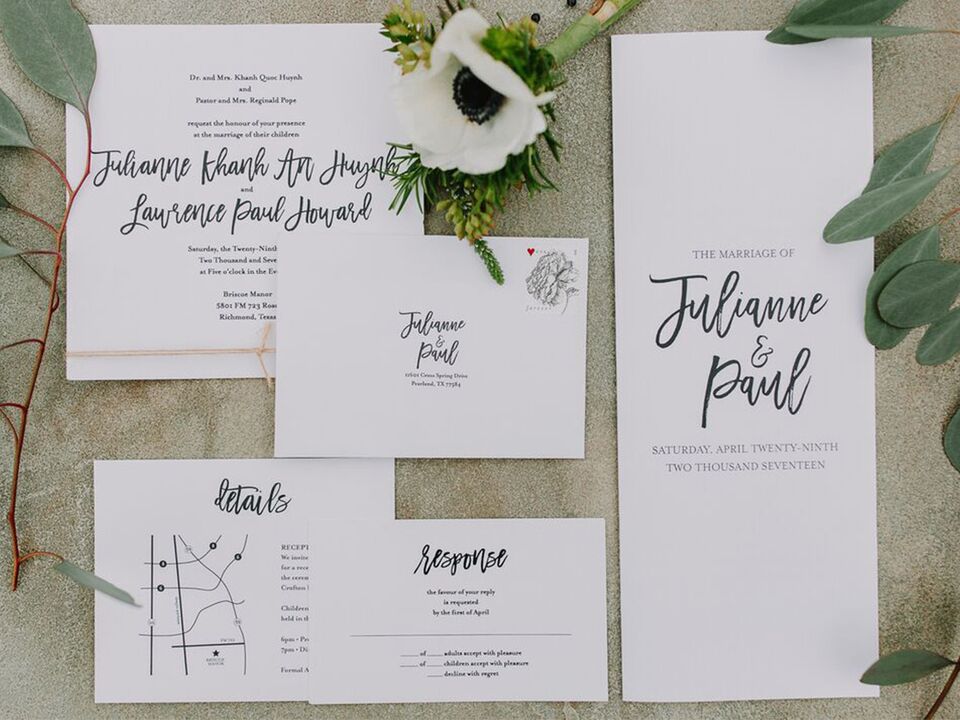 Dr. and Mrs. Khanh Quoc Huynh
and
Pastor and Mrs. Reginald Pope
request the honour of your presence
at the marriage of their children
Julianne Khanh An Huynh
and
Lawrence Paul Howard
Saturday, the Twenty-Ninth
Two Thousand and Seve
at Five o'clock in the Eve
Briscoe Manor
5801 FM 723 Road
Richmond, Texas
Julianne
&
Paul
Cross Spring Drive
Pearland, TX 77584
forever
THE MARRIAGE OF
Julianne
&
Paul
SATURDAY, APRIL TWENTY-NINTH
TWO THOUSAND SEVENTEEN
details
RECEPT
We invite
for a rece
the cerem
Crofton
Children
held in th
6pm • Pro
7pm • Di
Formal A
BRISCOE
MANOR
response
the favour of your reply
is requested
by the first of April
___ of ___ adults accept with pleasure
___ of ___ children accept with pleasure
___ decline with regret